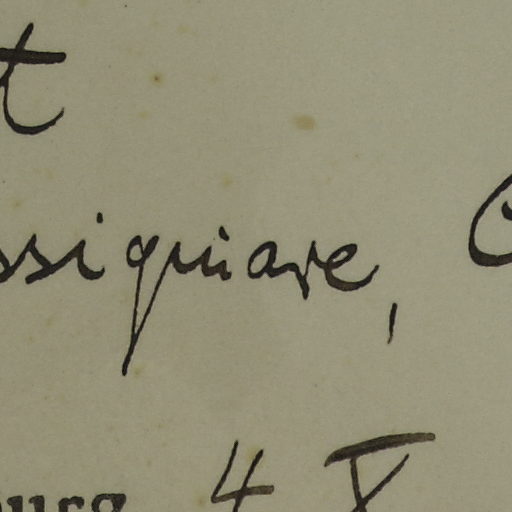 t
ssiquiare, C
ourg 4 V